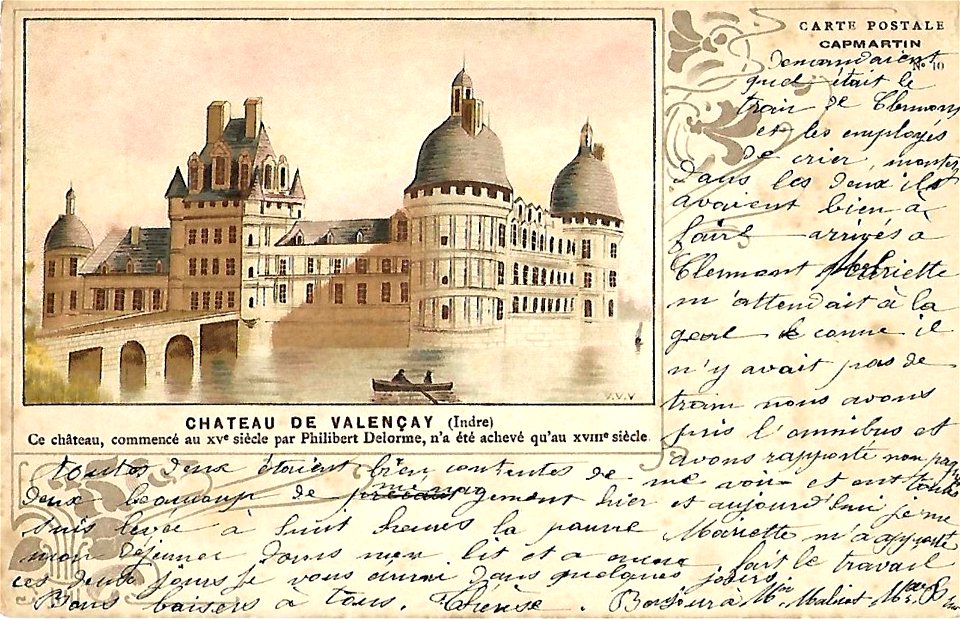 CARTE POSTALE
CAPMARTIN
Nº 10
demandaient
quel était le
train de Clermont
et les employés
de crier, montez
dans les deux ils
avaient bien à
faire arrivés à
Clermont Mariette
m'attendait à la
gare comme il
n'y avait pas de
train nous avons
pris l'omnibus et
avons rapporté non pas
CHATEAU DE VALENÇAY (Indre)
Ce château, commencé au XVe siècle par Philibert Delorme, n'a été achevé qu'au XVIIIe siècle.
V.V.V
toutes deux étaient bien contentes de me voir et ont toutes
deux beaucoup de ménagement hier et aujourd'hui je me
suis levée à huit heures la pauvre Mariette m'a apporté
mon déjeuner dans mon lit et a fait le travail
ces deux jours je vous écrirai dans quelques jours
Bons baisers à tous. Thérèse. Bonjour à